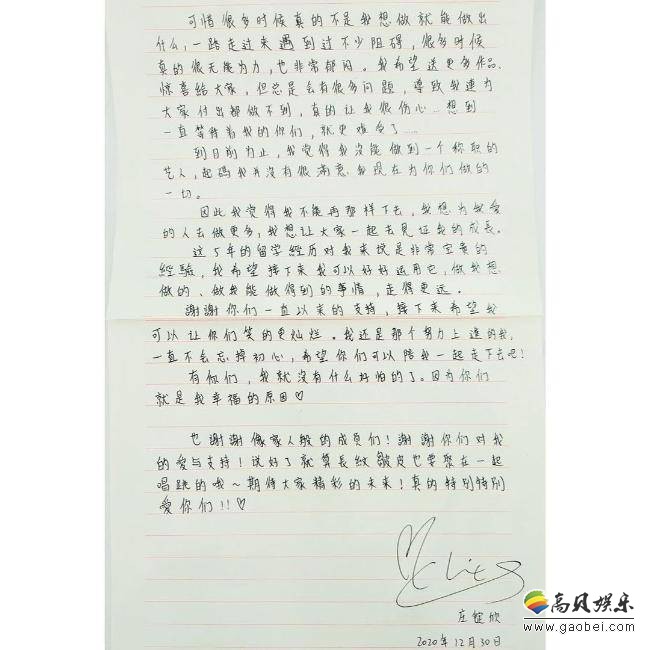 可惜很多时候真的不是我想做就能做出
什么,一路走过来遇到过不少阻碍,很多时候
真的很无能为力,也非常郁闷。我希望送更多作品、
惊喜给大家,但总是会有很多问题,導致我連为
大家付出都做不到,真的让我很伤心...想到
一直等待着我的你们,就更难受了....
到目前为止,我觉得我没能做到一个称职的
艺人,起码我并沒有很滿意我现在为你们做的
一切。
因此我觉得我不能再那样下去,我想为我爱
的人去做更多,我想让大家一起去见证我的成長。
这5年的留学经历对我来说是非常宝貴的
经驗,我希望接下来我可以好好运用它,做我想
做的、做我能做得到的事情,走得更远。
謝謝你们一直以来的支持,接下来希望我
可以让你们笑的更灿烂。我还是那个努力上進的我,
一直不会忘掉初心,希望你们可以陪我一起走下去吧!
有你们,我就沒有什么好怕的了。因为你们
就是我幸福的原因♡
也謝謝像家人般的成員们!謝謝你们对我
的愛与支持!说好了就算長紋皺皮也要聚在一起
唱跳的哦~期待大家精彩的未来!真的特别特别
愛你们!!♡
庄錠欣
2020年12月30日
高贝娱乐
www.gaobei.com